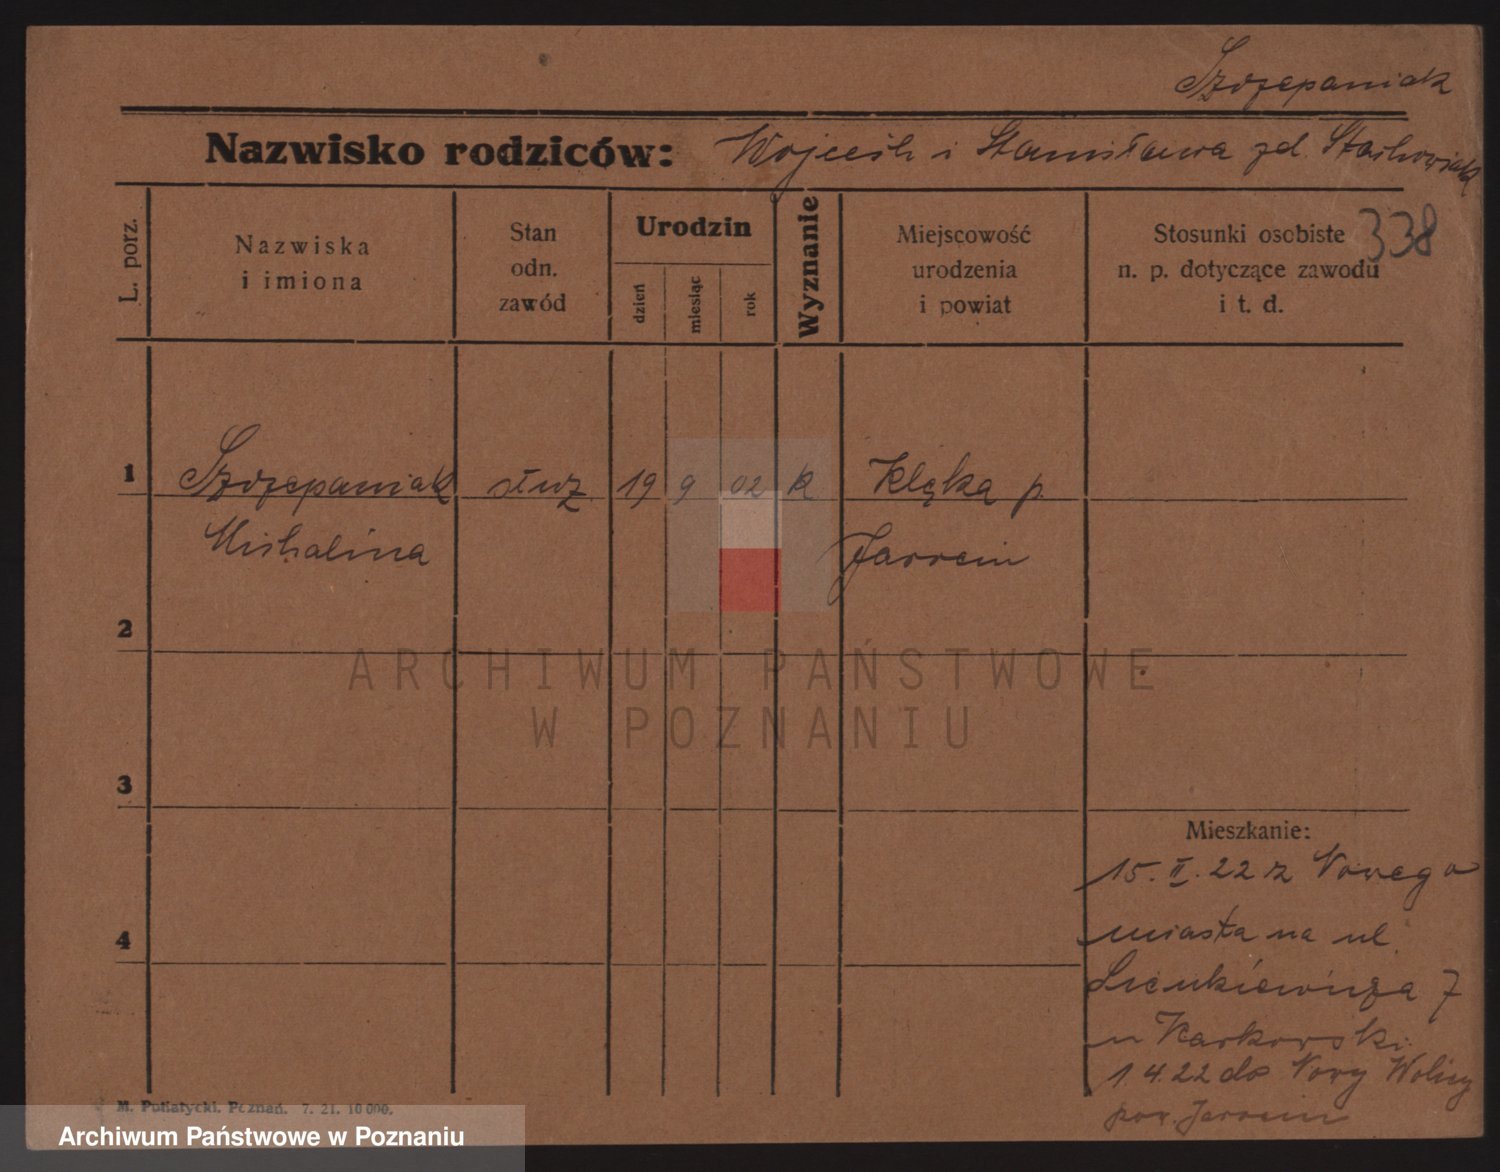 Szczepaniak
Nazwisko rodziców: Wojciech i Stanisława zd. Stachowiak
338
L. porz.
Nazwiska
i imiona
Stan
odn.
zawód
Urodzin
dzień
miesiąc
rok
Wyznanie
Miejscowość
urodzenia
i powiat
Stosunki osobiste
n. p. dotyczące zawodu
i t. d.
1 Szczepaniak służ. 19 9 02 k Klęka p.
Michalina Jarocin
2
3
4
Mieszkanie:
15. II. 22 z Nowego
miasta na ul.
Sienkiewicza 7
u Karkowski
1 4. 22 do Nowy
pow. Jarocin
M. Putiatycki. Poznań. 7. 21. 10 000.
ARCHIWUM PAŃSTWOWE
W POZNANIU
Archiwum Państwowe w Poznaniu